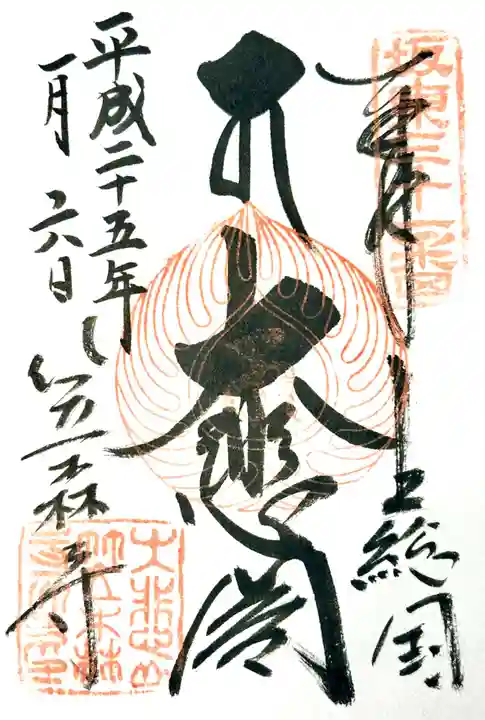 坂東三十一番
奉拝
上総国
大悲閣
平成二十五年
一月六日
笠森寺
大悲山
笠森